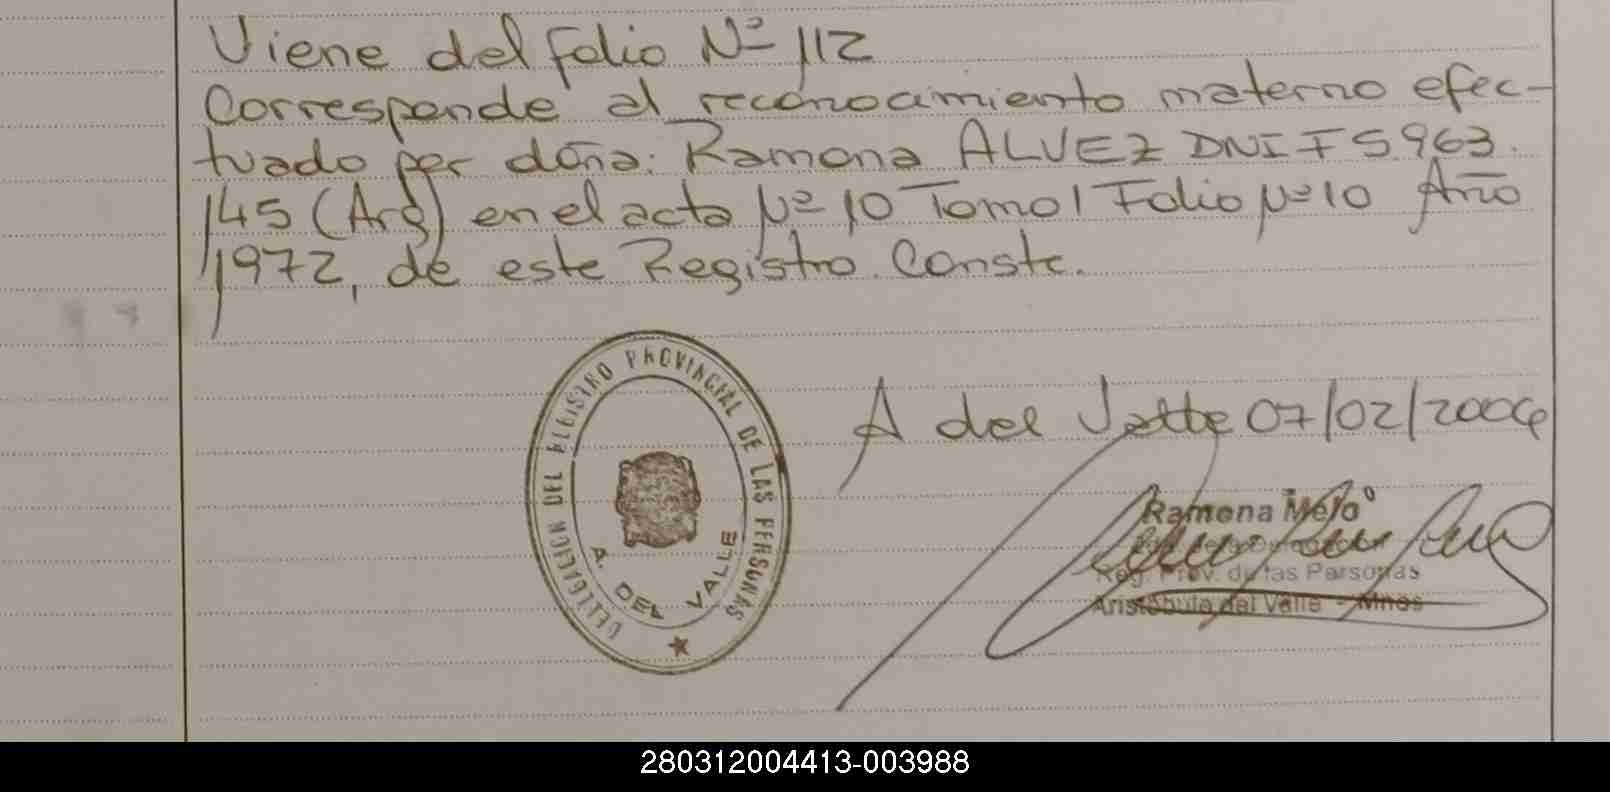 Viene del folio Nº 112
Corresponde al reconocimiento materno efec-
tuado por doña: Ramona ALVEZ DNI F 5.963.
145 (Arg) en el acta Nº 10 Tomo 1 Folio Nº 10 Año
1972, de este Registro. Conste.
DELEGACION DEL REGISTRO PROVINCIAL DE LAS PERSONAS
A. DEL VALLE
A del Valle 07/02/2006
Ramona Melo
Reg. Prov. de las Personas
Aristóbulo del Valle - Mnes
280312004413-003988